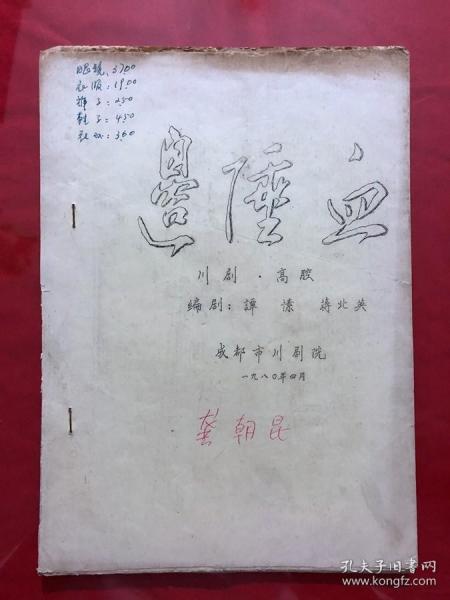 眼镜:37.00
衣服:19.00
裤子:2.50
鞋子:4.50
衣〇:3.60
邊塵血
川剧·高腔
编剧:譚愫 蒋北英
成都市川剧院
一九八〇年四月
龚朝昆
孔夫子旧书网
www.kongfz.com